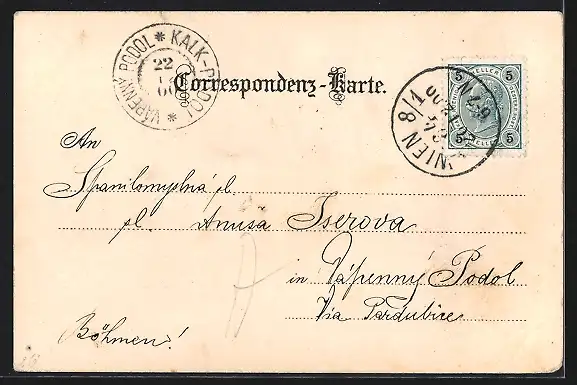 VÁPENNÝ PODOL * KALK-PODOL *
22
Correspondenz-Karte.
5 HELLER 5
5 5
WIEN 8/1
An
Spanilomyslná sl.
sl. Anusa Iserova
in Vápenný Podol
Via Pardubice
Böhmen!